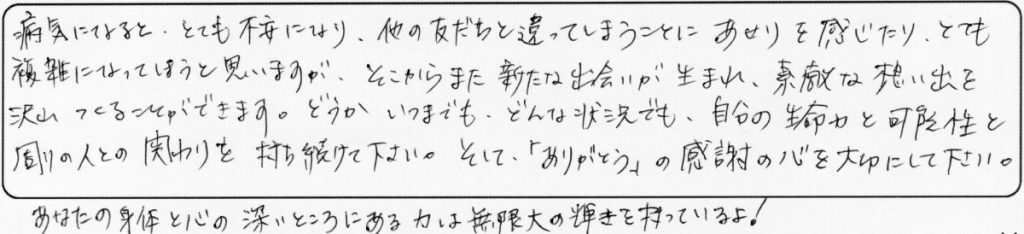 病気になると、とても不安になり、他の友だちと違ってしまうことにあせりを感じたり、とても
複雑になってしまうと思いますが、そこからまた新たな出会いが生まれ、素敵な想い出を
沢山つくることができます。どうかいつまでも、どんな状況でも、自分の生命力と可能性と
周りの人との関わりを持ち続けて下さい。そして、「ありがとう」の感謝の心を大切にして下さい。
あなたの身体と心の深いところにある力は無限大の輝きを持っているよ!